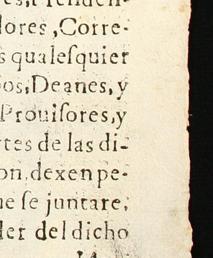 dores, Corre-
s qualesquier
os, Deanes, y
Prouisores, y
rtes de las di-
on, dexen pe-
se juntare,
der del dicho